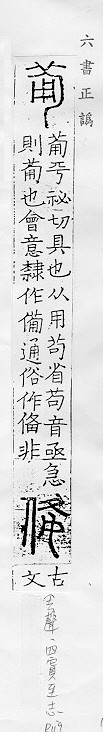 六書正譌
葡平祕切具也从用苟省苟音亟急
則葡也會意隸作備通俗作俻非
古文
去聲．四寘至志
P119